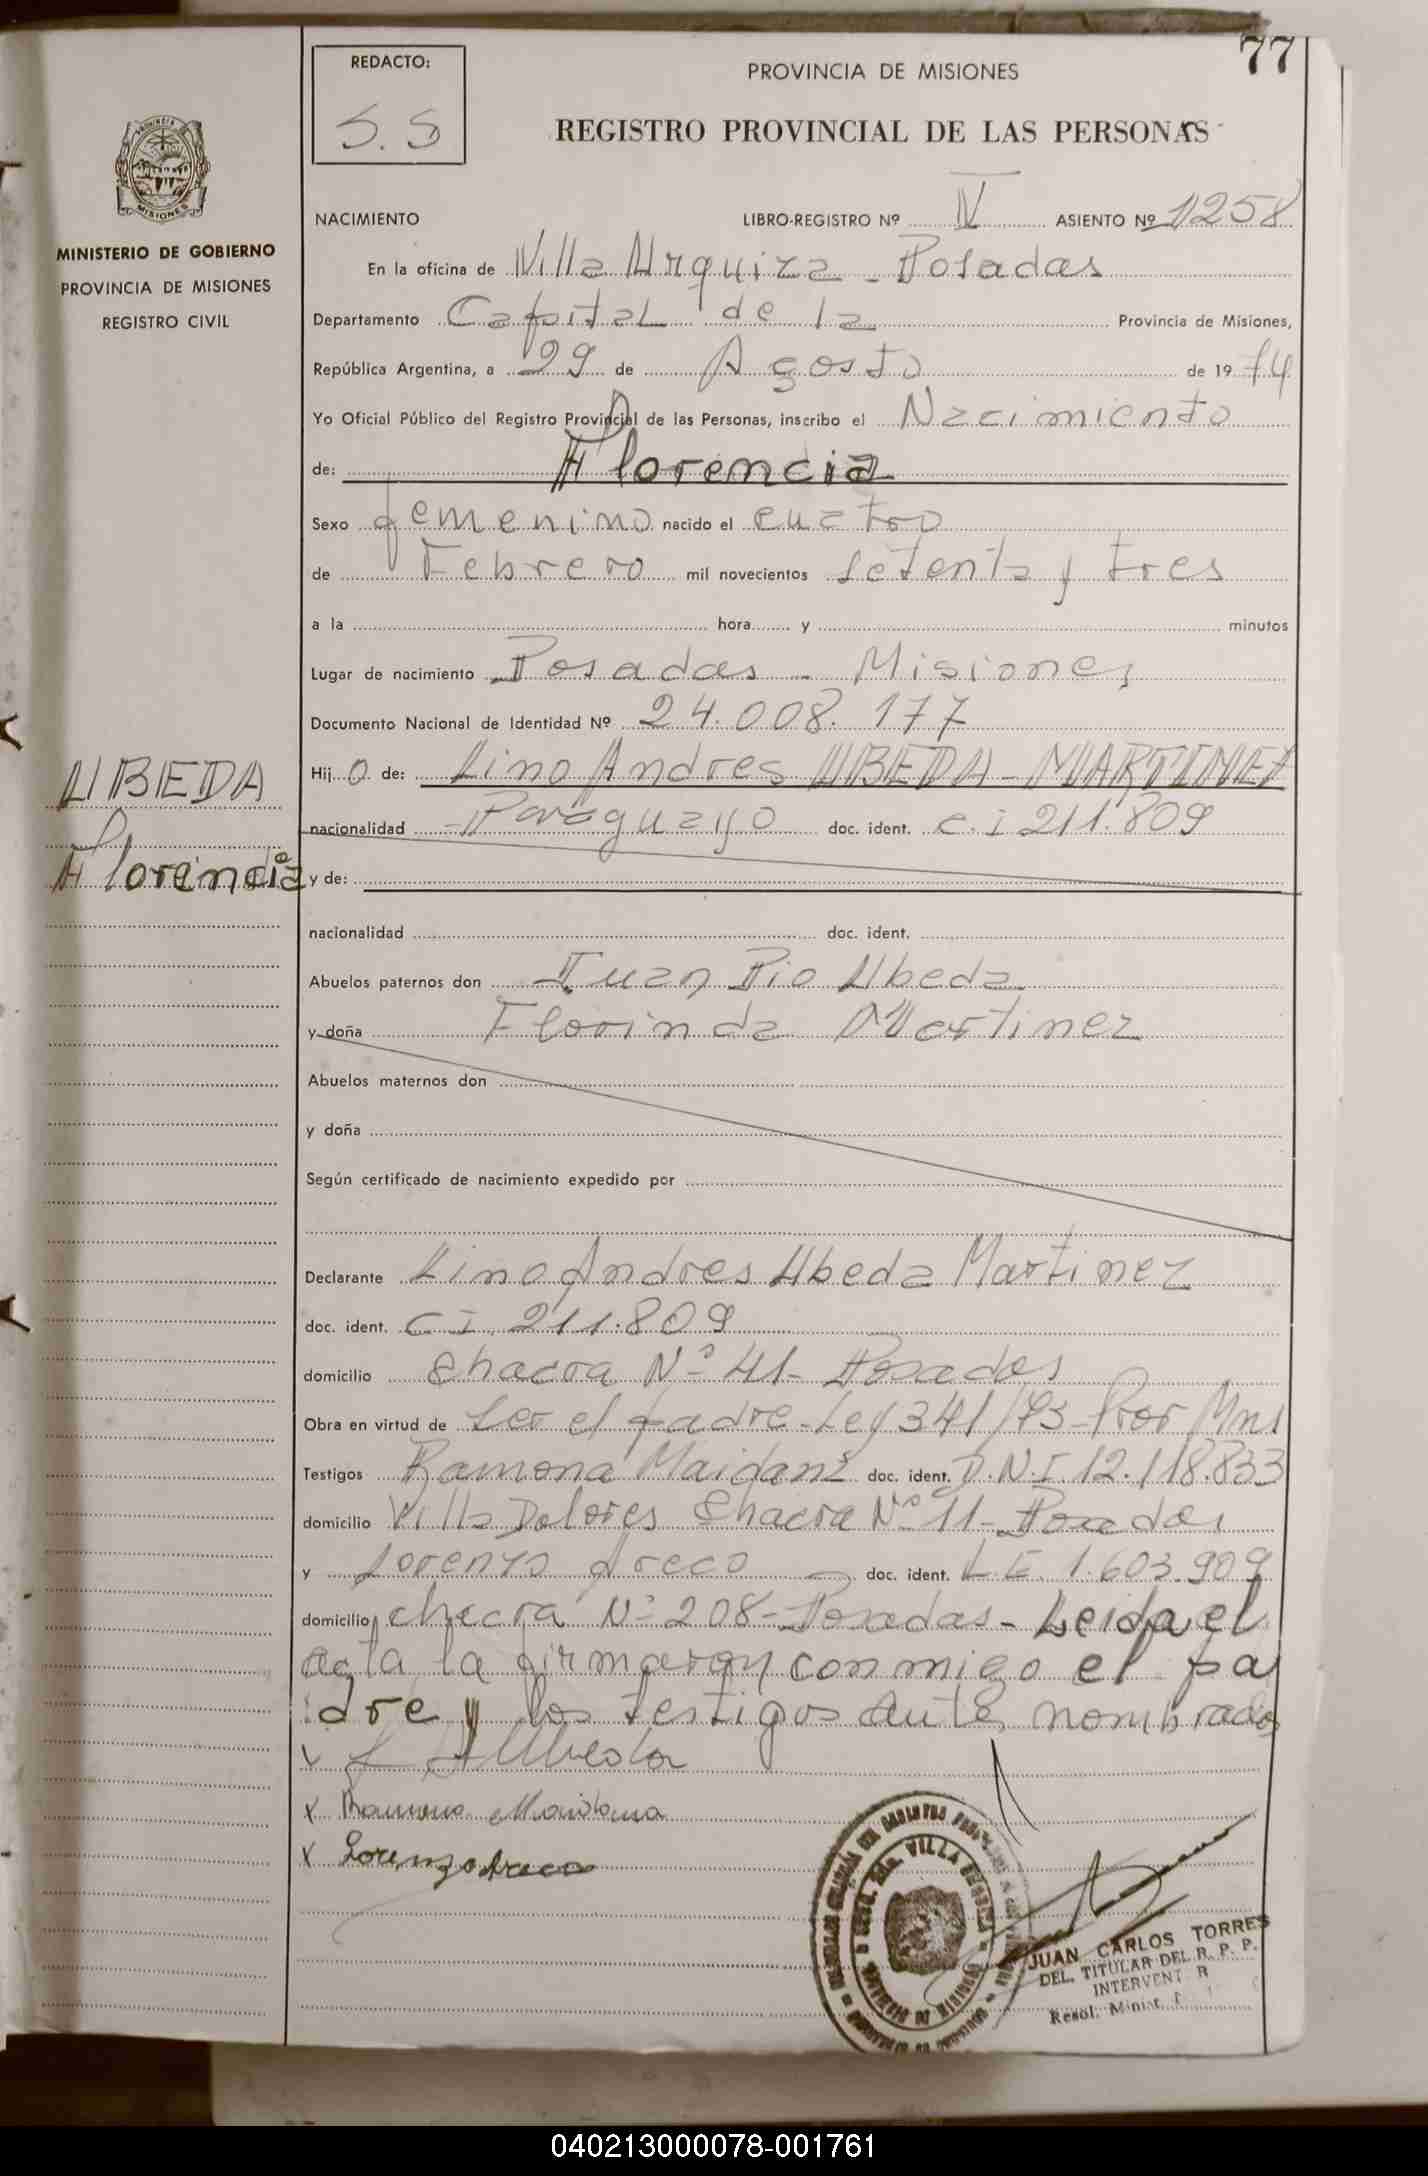 77
REDACTO:
S.S
PROVINCIA DE MISIONES
REGISTRO PROVINCIAL DE LAS PERSONAS
PROVINCIA
MISIONES
MINISTERIO DE GOBIERNO
PROVINCIA DE MISIONES
REGISTRO CIVIL
NACIMIENTO LIBRO-REGISTRO Nº IV ASIENTO Nº 1258
En la oficina de Villa Urquiza - Posadas
Departamento Capital de la Provincia de Misiones,
República Argentina, a 29 de Agosto de 1974
Yo Oficial Público del Registro Provincial de las Personas, inscribo el Nacimiento
de: Florencia
Sexo femenino nacido el cuatro
de Febrero mil novecientos setenta y tres
a la hora y minutos
Lugar de nacimiento Posadas - Misiones
Documento Nacional de Identidad Nº 24.008.177
Hij o de: Lino Andres UBEDA - MARTINEZ
nacionalidad Paraguayo doc. ident. c.i 211.809
UBEDA
Florencia
y de:
nacionalidad doc. ident.
Abuelos paternos don Juan Pio Ubeda
y doña Florinda Martinez
Abuelos maternos don
y doña
Según certificado de nacimiento expedido por
Declarante Lino Andres Ubeda Martinez
doc. ident. C I 211.809
domicilio Chacra Nº 41 - Posadas
Obra en virtud de ser el padre - Ley 341/73 - Pror Mns
Testigos Ramona Maidana doc. ident. D.N.I. 12.118.833
domicilio Villa Dolores Chacra Nº 11 - Posadas
y Lorenzo doc. ident. L.E. 1.603.909
domicilio chacra Nº 208 - Posadas - Leida el
acta la firmaron conmigo el pa
dre y los testigos antes nombrados
x Ubeda
x Ramona Maidana
x Lorenzo
JUAN CARLOS TORRES
DEL. TITULAR DEL R. P. P.
Resol. Minist.
040213000078-001761